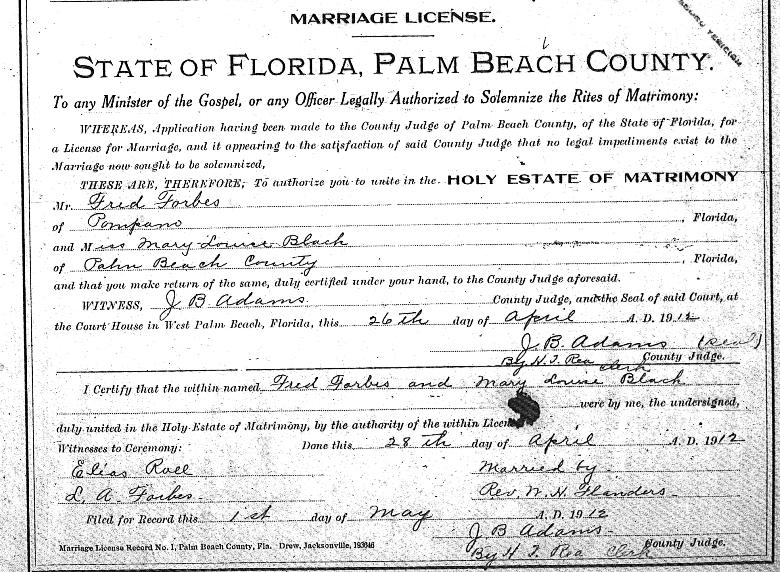 MARRIAGE LICENSE.
STATE OF FLORIDA, PALM BEACH COUNTY.
To any Minister of the Gospel, or any Officer Legally Authorized to Solemnize the Rites of Matrimony:
WHEREAS, Application having been made to the County Judge of Palm Beach County, of the State of Florida, for
a License for Marriage, and it appearing to the satisfaction of said County Judge that no legal impediments exist to the
Marriage now sought to be solemnized,
THESE ARE, THEREFORE, To authorize you to unite in the HOLY ESTATE OF MATRIMONY
Mr. Fred Forbes
of Pompano, Florida,
and Miss Mary Louise Black
of Palm Beach County, Florida,
and that you make return of the same, duly certified under your hand, to the County Judge aforesaid.
WITNESS, J B Adams County Judge, and the Seal of said Court, at
the Court House in West Palm Beach, Florida, this 26th day of April A. D. 1912
J. B. Adams (seal)
By H. T. Rea Clerk County Judge.
I Certify that the within named Fred Forbes and Mary Louise Black
were by me, the undersigned,
duly united in the Holy Estate of Matrimony, by the authority of the within
Witnesses to Ceremony: Done this 28th day of April A. D. 1912
Elias Roll Married by
L. A. Forbes Rev. W. H. Flanders
Filed for Record this 1st day of May A. D. 1912
J B Adams
By H T. Rea Clerk County Judge.
Marriage License Record No. 1, Palm Beach County, Fla. Drew, Jacksonville, 193046